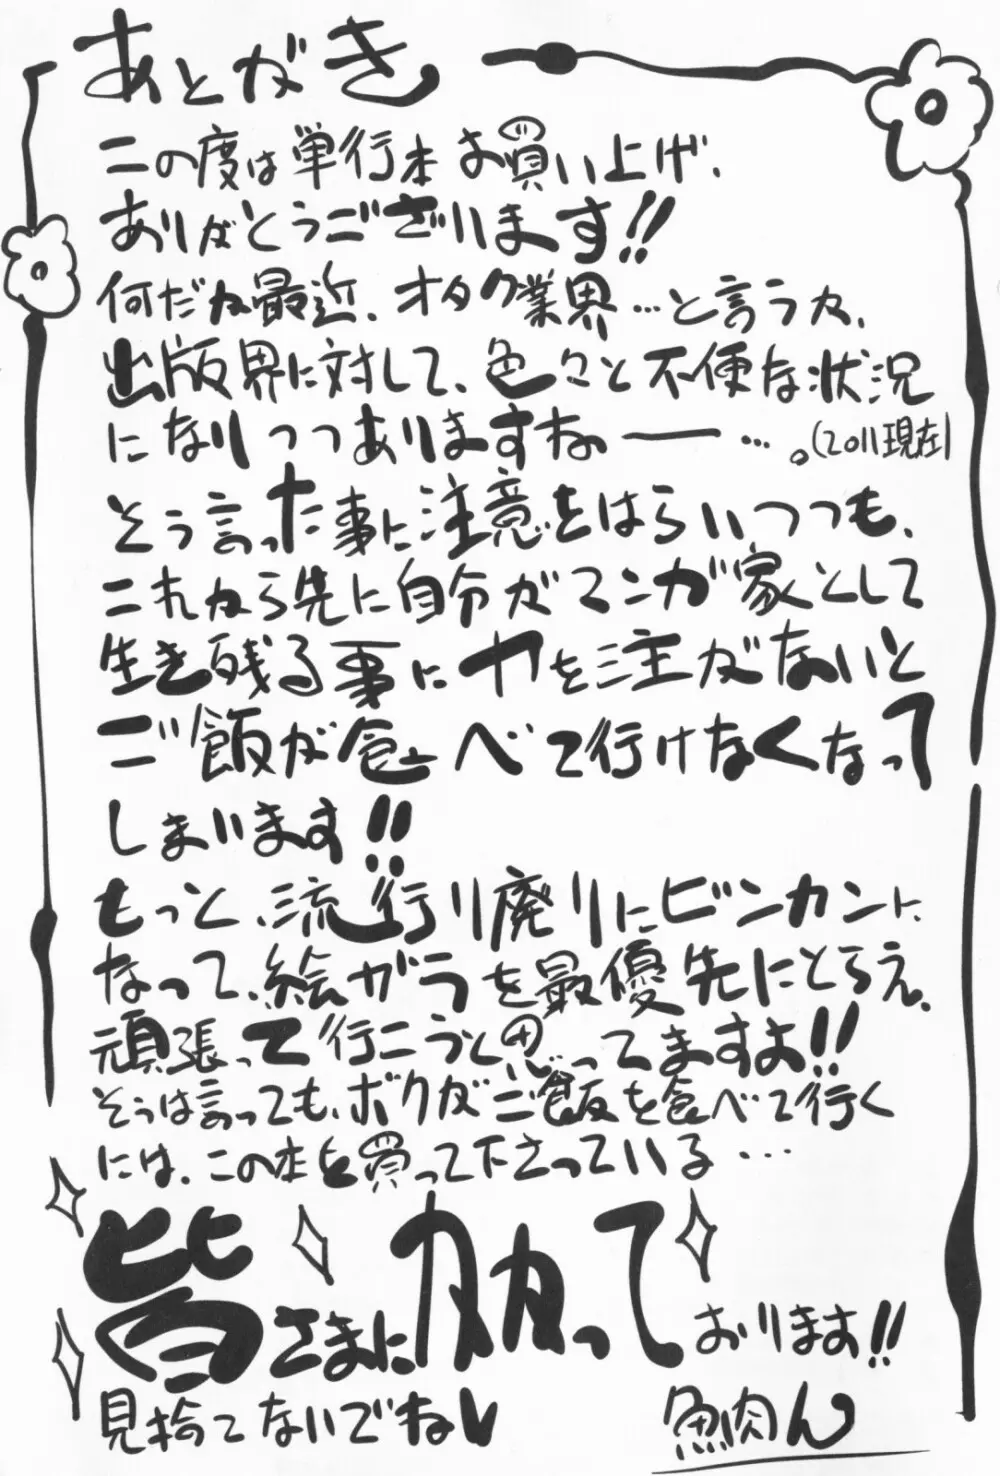 あとがき
この度は単行本お買い上げ、
ありがとうございます!!
何だか最近、オタク業界…と言うか、
出版界に対して、色々と不便な状況
になりつつありますねー…。(2011現在)
そう言った事に注意をはらいつつも、
これから先に自分がマンガ家として
生き残る事に力を注がないと
ご飯が食べて行けなくなって
しまいます!!
もっと、流行り廃りにビンカンに
なって、絵ガラを最優先にとらえ、
頑張って行こうと思ってますよ!!
そうは言っても、ボクがご飯を食べて行く
には、この本を買って下さっている…
皆さまにかかって おります!!
見捨てないでね♥
魚肉ん